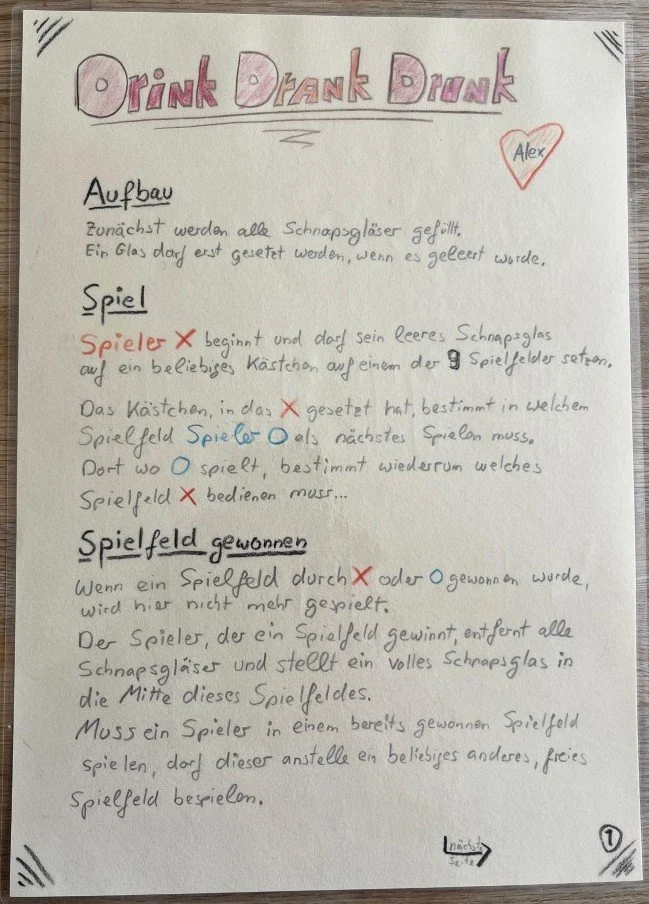 Drink Drank Drunk
Alex
Aufbau
Zunächst werden alle Schnapsgläser gefüllt.
Ein Glas darf erst gesetzt werden, wenn es geleert wurde.
Spiel
Spieler X beginnt und darf sein leeres Schnapsglas
auf ein beliebiges Kästchen auf einem der 9 Spielfelder setzen.
Das Kästchen, in das X gesetzt hat, bestimmt in welchem
Spielfeld Spieler O als nächstes Spielen muss.
Dort wo O spielt, bestimmt wiederrum welches
Spielfeld X bedienen muss...
Spielfeld gewonnen
Wenn ein Spielfeld durch X oder O gewonnen wurde,
wird hier nicht mehr gespielt.
Der Spieler, der ein Spielfeld gewinnt, entfernt alle
Schnapsgläser und stellt ein volles Schnapsglas in
die Mitte dieses Spielfeldes.
Muss ein Spieler in einem bereits gewonnen Spielfeld
spielen, darf dieser anstelle ein beliebiges anderes, freies
Spielfeld bespielen.
nächste
Seite
1